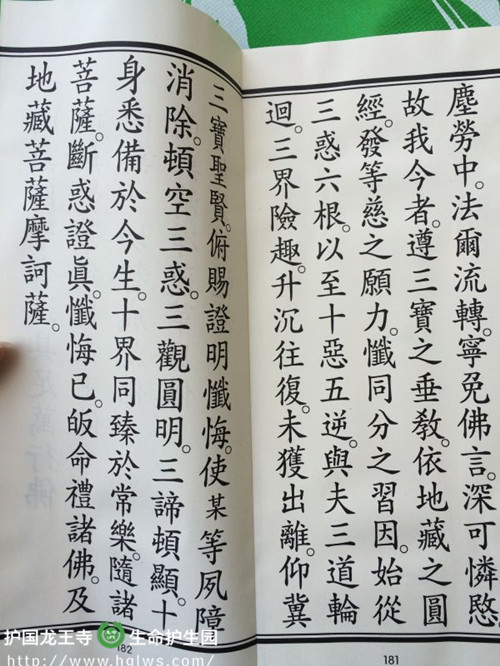 塵勞中。法爾流轉。寧免佛言。深可憐愍。
故我今者。遵三寶之垂教。依地藏之圓
經。發等慈之願力。懺同分之習因。始從
三惑六根。以至十惡五逆。與夫三道輪
迴。三界險趣。升沉往復。未獲出離。仰冀
181
三寶聖賢。俯賜證明懺悔。使某等夙障
消除。頓空三惑。三觀圓明。三諦頓顯。十
身悉備於今生。十界同臻於常樂。隨諸
菩薩。斷惑證眞。懺悔已。皈命禮諸佛。及
地藏菩薩摩訶薩。
182
护国龙王寺 生命护生园
http://www.hglws.com